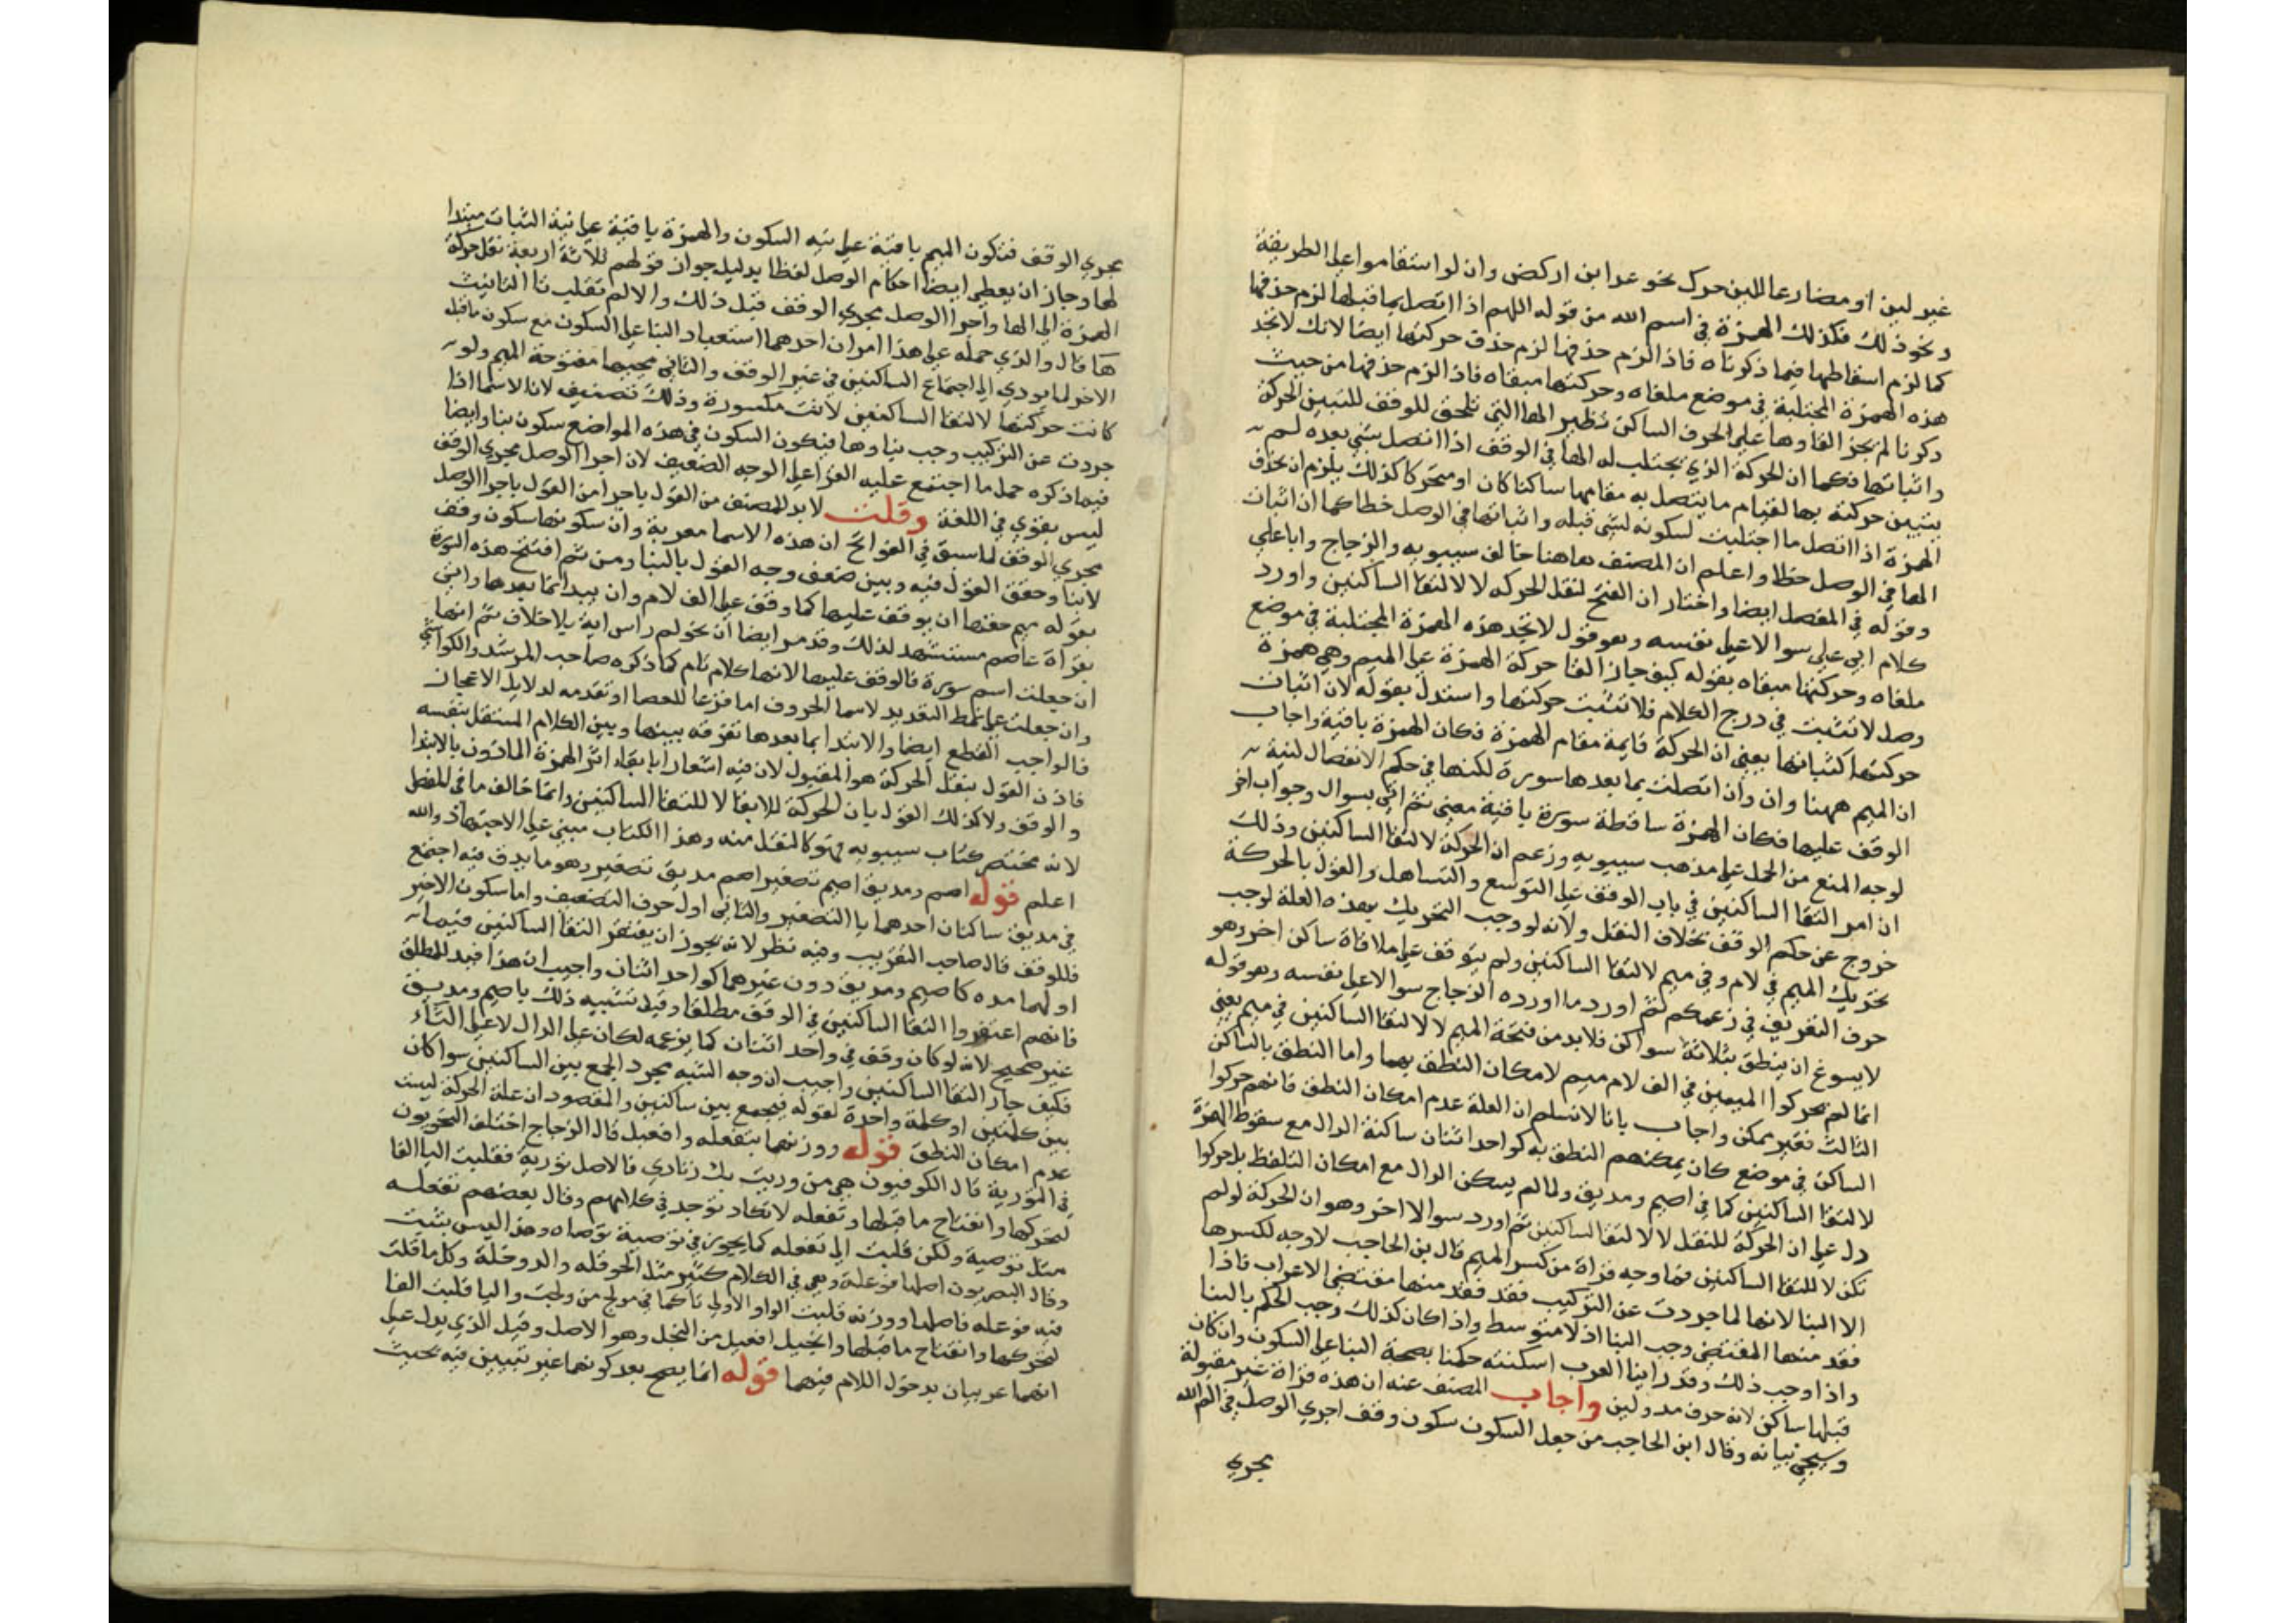 غير لين او مضارعا للين حرك نحو عدا بن اركض وان لو استقاموا على الطريقة
ونحو ذلك فكذلك الهمزة في اسم الله من قوله اللهم اذا اتصل بما قبلها لزم حذفها
كما لزم اسقاطها فيما ذكرناه فاذا لزم حذفها لزم حذف حركتها ايضا لانك لا تجد
هذه الهمزة المجتلبة في موضع ملغاه وحركتها مبقاه فاذا لزم حذفها من حيث
ذكرنا لم يجز القاوها على الحرف الساكن نظير الها التي تلحق للوقف للتبين الحركة
واثباتها فكما ان الحركة الذي يجتلب له الها في الوقف اذا اتصل بشي بعده لم
يتبين حركته بها لقيام ما يتصل به مقامها ساكنا كان او متحركا كذلك يلزم ان تحذف
الهمزة اذا اتصل ما اجتلبت لسكونه لشي قبله واثباتها في الوصل خطا كما ان اثبات
الها في الوصل خطا واعلم ان المصنف هاهنا خالف سيبويه والزجاج وابا علي
وقوله في المفصل ايضا واختار ان الفتح لنقل الحركه لا لالتقا الساكنين واورد
كلام ابي علي سوالا على نفسه وهو قول لا تجد هذه الهمزة المجتلبة في موضع
ملغاه وحركتها مبقاه بقوله كيف جاز القا حركة الهمزة على الميم وهي همزة
وصل لا تثبت في درج الكلام فلا تثبت حركتها واستدل بقوله لان اثبات
حركتها كثباتها يعني ان الحركة قايمة مقام الهمزة فكان الهمزة باقية واجاب
ان الميم ههنا وان وان اتصلت بما بعدها سورة لكنها في حكم الانفصال لنية
الوقف عليها فكان الهمزة ساقطة سورة باقية معنى ثم اتي بسوال وجواب اخر
لوجه المنع من الحمل على مذهب سيبويه وزعم ان الحركة لالتقا الساكنين وذلك
ان امر التقا الساكنين في باب الوقف على التوسع والتساهل والقول بالحركة
خروج عن حكم الوقف بخلاف النقل ولانه لو وجب التحريك بهذه العلة لوجب
تحريك الميم في لام وفي ميم لالتقا الساكنين ولم يتوقف على ملاقاة ساكن اخر وهو
حرف التعريف في زعمكم ثم اورد ما اورده الزجاج سوالا على نفسه وهو قوله
لا يسوغ ان ينطق بثلاثة سواكن فلا بد من فتحة الميم لا لالتقا الساكنين في ميم يعني
انما لم يحركوا الميمين في الف لام ميم لامكان النطق بهما واما النطق بالساكن
الثالث فغير ممكن واجاب بانا لا نسلم ان العلة عدم امكان النطق فانهم حركوا
الساكن في موضع كان يمكنهم النطق به كواحد اثنان ساكنة الدال مع سقوط الهمزة
لالتقا الساكنين كما في اصيم ومديق ولما لم يسكن الدال مع امكان التلفظ بل حركوا
دل على ان الحركة للنقل لا لالتقا الساكنين ثم اورد سوالا اخر وهو ان الحركة لو لم
تكن لالتقا الساكنين فما وجه قراة من كسر الميم قال بن الحاجب لا وجه لكسرها
الا البنا لانها لما جردت عن التركيب فقد فقد منها مقتضي الاعراب فاذا
فقد منها المقتضي وجب البنا اذ لا متوسط واذا كان كذلك وجب الحكم بالبنا
واذا وجب ذلك وقد راينا العرب اسكنته حكمنا بصحة البنا على السكون وان كان
قبلها ساكن لانه حرف مد ولين واجاب المصنف عنه ان هذه قراة غير مقبولة
وسيجي بيانه وقال ابن الحاجب من جعل السكون سكون وقف اجري الوصل في الم الله
يجري
مجري الوقف فتكون الميم باقية على نية السكون والهمزة باقية على نية الثبات مبتدا
لها وجاز ان يعطي ايضا احكام الوصل لفظا بدليل جواز قولهم ثلاثة اربعة نقل حركة
الهمزة الى الها واجوا الوصل مجري الوقف قبل ذلك والا لم تقلب تا التانيث
ها قال والذي حمله على هذا امران احدهما استبعاد البنا على السكون مع سكون ما قبل
الاخر لما يودي الى اجتماع الساكنين في غير الوقف والثاني مجيها مفتوحة الميم ولو
كانت حركتها لالتقا الساكنين لانت مكسورة وذلك تضعيف لانا لاسما اذا
جردت عن التركيب وجب بناوها فيكون السكون في هذه المواضع سكون بنا وايضا
فيما ذكره حمل ما اجتمع عليه القرا على الوجه الضعيف لان اجرا الوصل مجري الوقف
ليس بقوي في اللغة وقلت لا بد للمصنف من القول باجرا من القول باجرا الوصل
مجري الوقف لما سبق في الفواتح ان هذه الاسما معربة وان سكونها سكون وقف
لا بنا وحقق القول فيه وبين ضعف وجه القول بالبنا ومن ثم افتتح هذه السورة
بقوله ميم حقها ان يوقف عليها كما وقف على الف لام وان يبدا بما بعدها واتي
بقراة عاصم مستشهد لذلك وقد مر ايضا ان نحو لم راس اية بلا خلاف ثم انها
ان جعلت اسم سورة فالوقف عليها لانها كلام تام كما ذكره صاحب المرشد والكواشي
وان جعلت على نمط التعديد لاسما الحروف اما قرعا للعصا او تقدمه لدلايل الاعجاز
فالواجب القطع ايضا والابتدا بما بعدها تفرقة بينها وبين الكلام المستقل بنفسه
فاذن القول بنقل الحركة هو المقبول لان فيه اشعارا بابقاء اثر الهمزة الماذون بالابتدا
والوقف ولا كذلك القول بان الحركة لالتقا الساكنين وانما خالف ما في المفصل
لانه مختصر كتاب سيبويه فهو كالنقل منه وهذا الكتاب مبني على الاجتهاد والله
اعلم قوله اصم ومديق اصيم تصغير اصم مديق تصغير وهو ما يدق فيه اجتمع
في مديق ساكنان احدهما يا التصغير والثاني اول حرف التضعيف واما سكون الاخير
فللوقف قال صاحب التقريب وفيه نظر لانه يجوز ان يغتفر التقا الساكنين فيما
اولهما مده كاصيم ومديق دون غيرهما كواحد اثنان واجيب ان هذا قيد للمطلق
فانهم اغتفروا التقا الساكنين في الوقف مطلقا وقيل تشبيه ذلك باصيم ومديق
غير صحيح لانه لو كان وقف في واحد اثنان كما يزعمه لكان على الدال لا على الثاء
فكيف جاز التقا الساكنين واجيب ان وجه الشبه مجرد الجمع بين الساكنين سوا كان
بين كلمتين او كلمة واحدة لقوله فيجمع بين ساكنين والمقصود ان علة الحركة ليست
عدم امكان النطق قوله ووزنهما بتفعله وافعيل قال الزجاج اختلف النحويون
في التورية قال الكوفيون هي من وريت بك زنادي فالاصل تورية فقلبت اليا الفا
لتحركها وانفتاح ما قبلها وتفعله لا تكاد توجد في كلامهم وقال بعضهم تفعله
مثل توصية ولكن قلبت الى تفعله كما يجوز في توصية توصاه وهذا ليس بثبت
وقال البصريون اصلها فوعلة وهي في الكلام كثير مثل الحوقله والدوخلة وكل ما قلت
فيه فوعله فاصلها وورنه قلبت الواو الاولي تا كما في تولج من ولجت واليا قلبت الفا
لتحركها وانفتاح ما قبلها وانجيل افعيل من النجل وهو الاصل وقيل الذي يدل على
انهما عربيان بدخول اللام فيهما قوله انما يصح بعد كونهما غير تبيين فيه بحيث